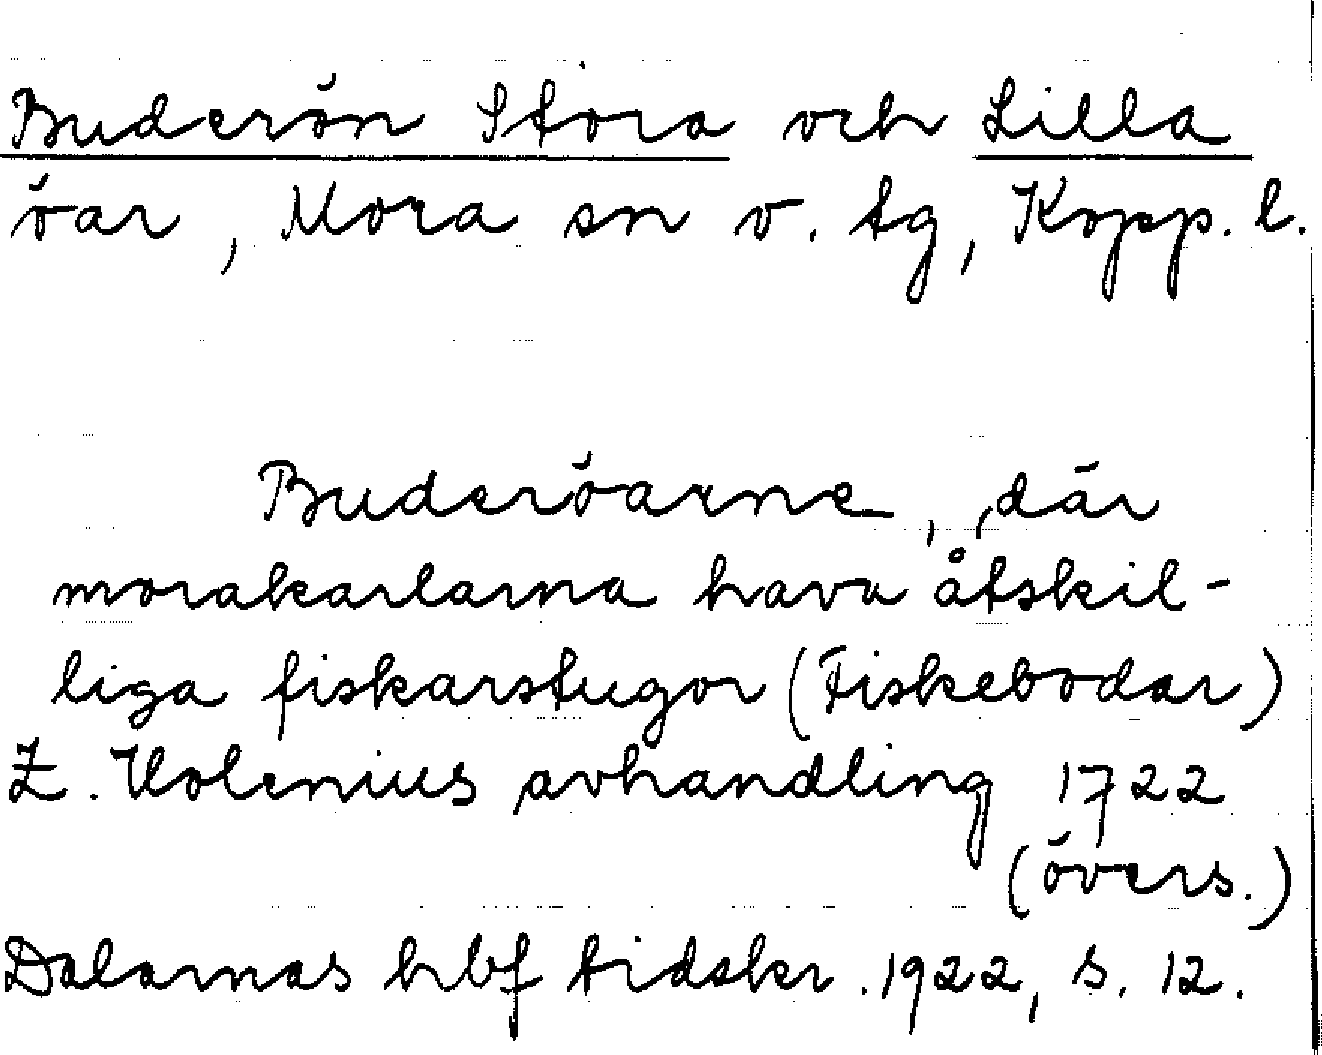 Buderön Stora och Lilla
öar, Mora sn v. tg, Kopp. l.
Buderöarne, där
morakarlarna hava åtskil-
liga fiskarstugor (Fiskebodar)
Z. Holenius avhandling 1722
(övers.)
Dalarnas hbf tidskr. 1922, s. 12.